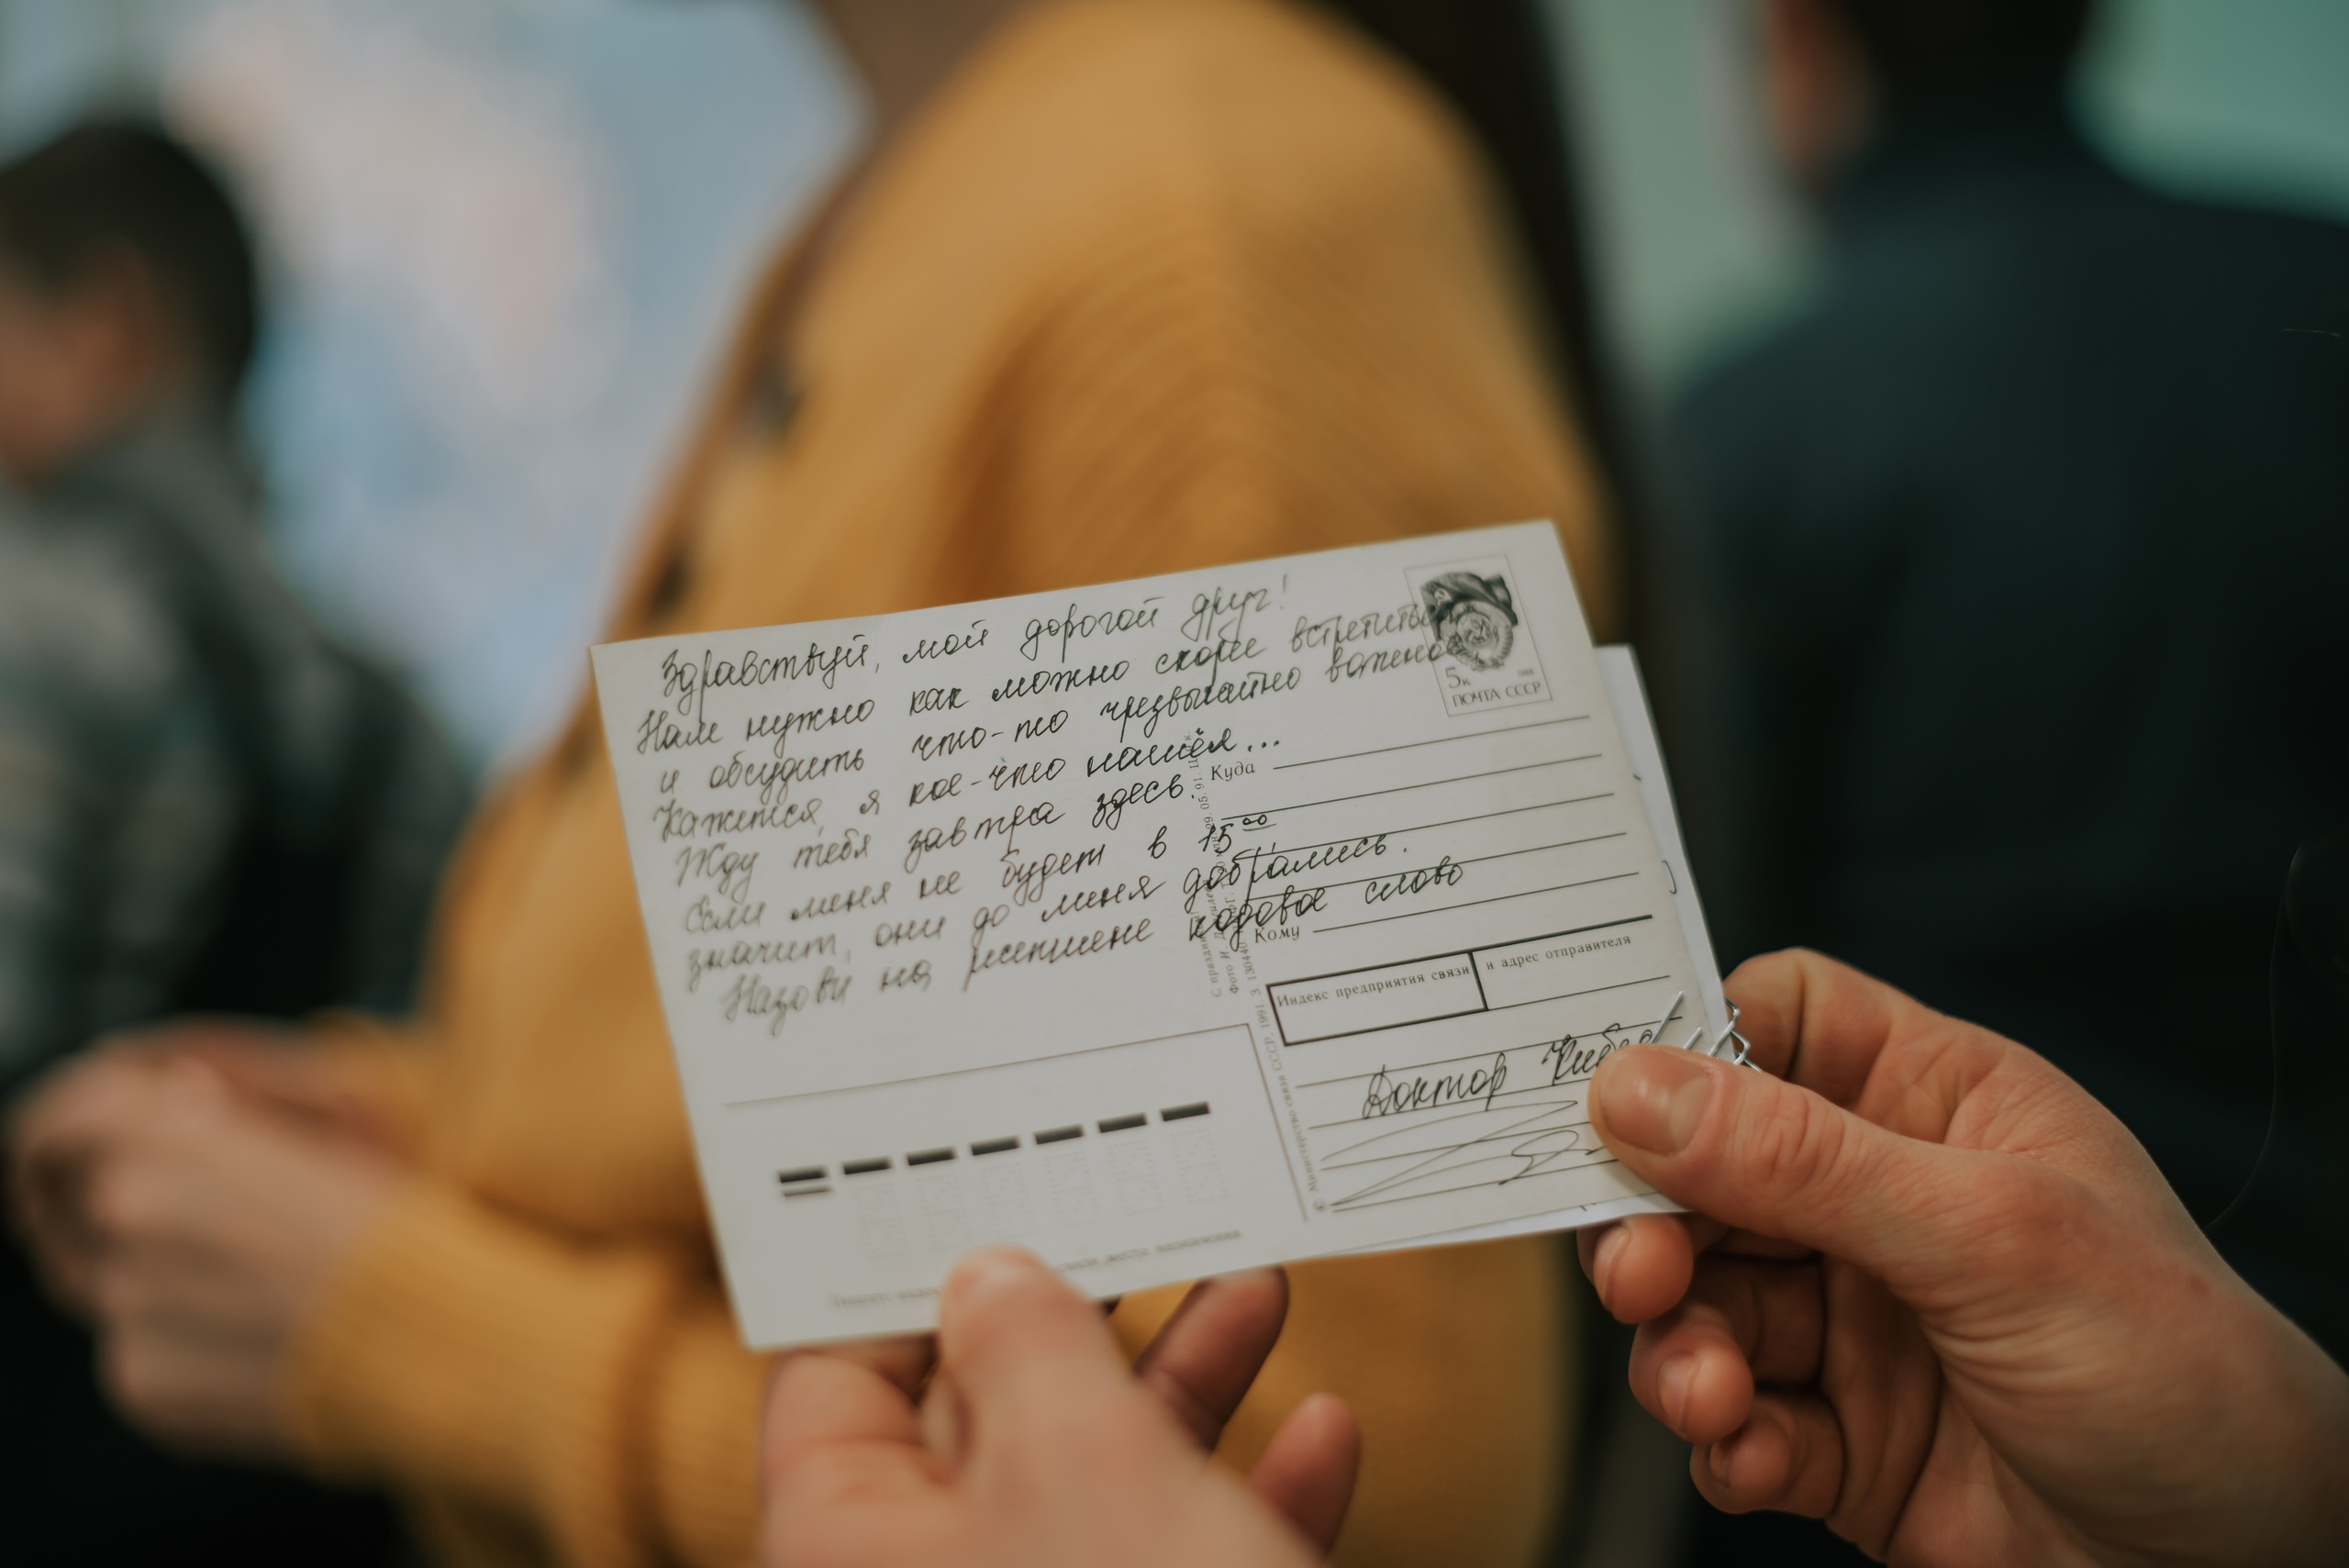 Здравствуй, мой дорогой друг!
Нам нужно как можно скорее встретиться
и обсудить что-то чрезвычайно важное.
Кажется, я кое-что нашёл...
Жду тебя завтра здесь.
Если меня не будет в 15⁰⁰
значит, они до меня добрались.
Назови на ресепшене кодовое слово
5к
ПОЧТА СССР
Куда
Кому
Индекс предприятия связи
и адрес отправителя
Доктор
© Министерство связи СССР. 1991. З. 130440
места назначения